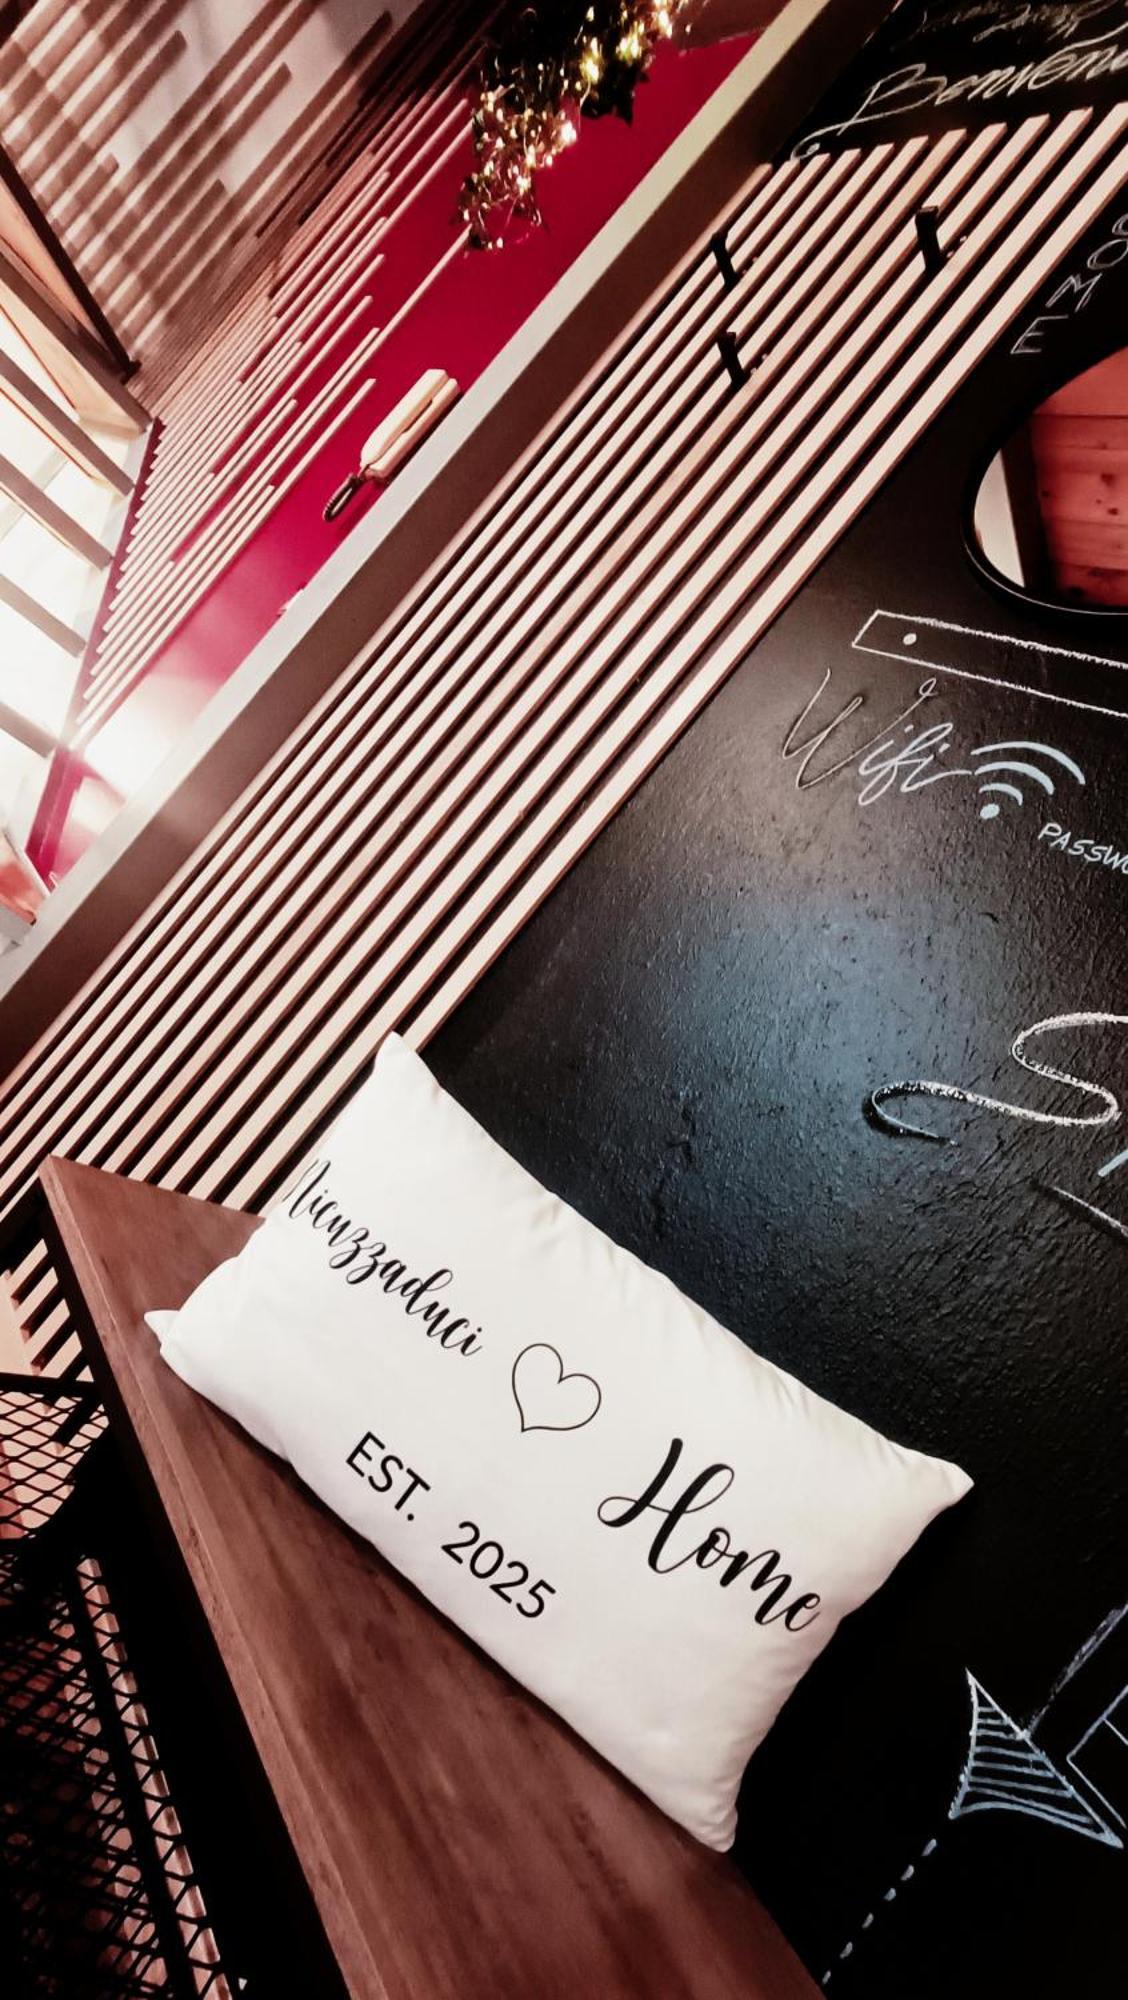 Benven
OME
Wifi
PASSWO
S
Nicuzzaduci
Home
EST. 2025